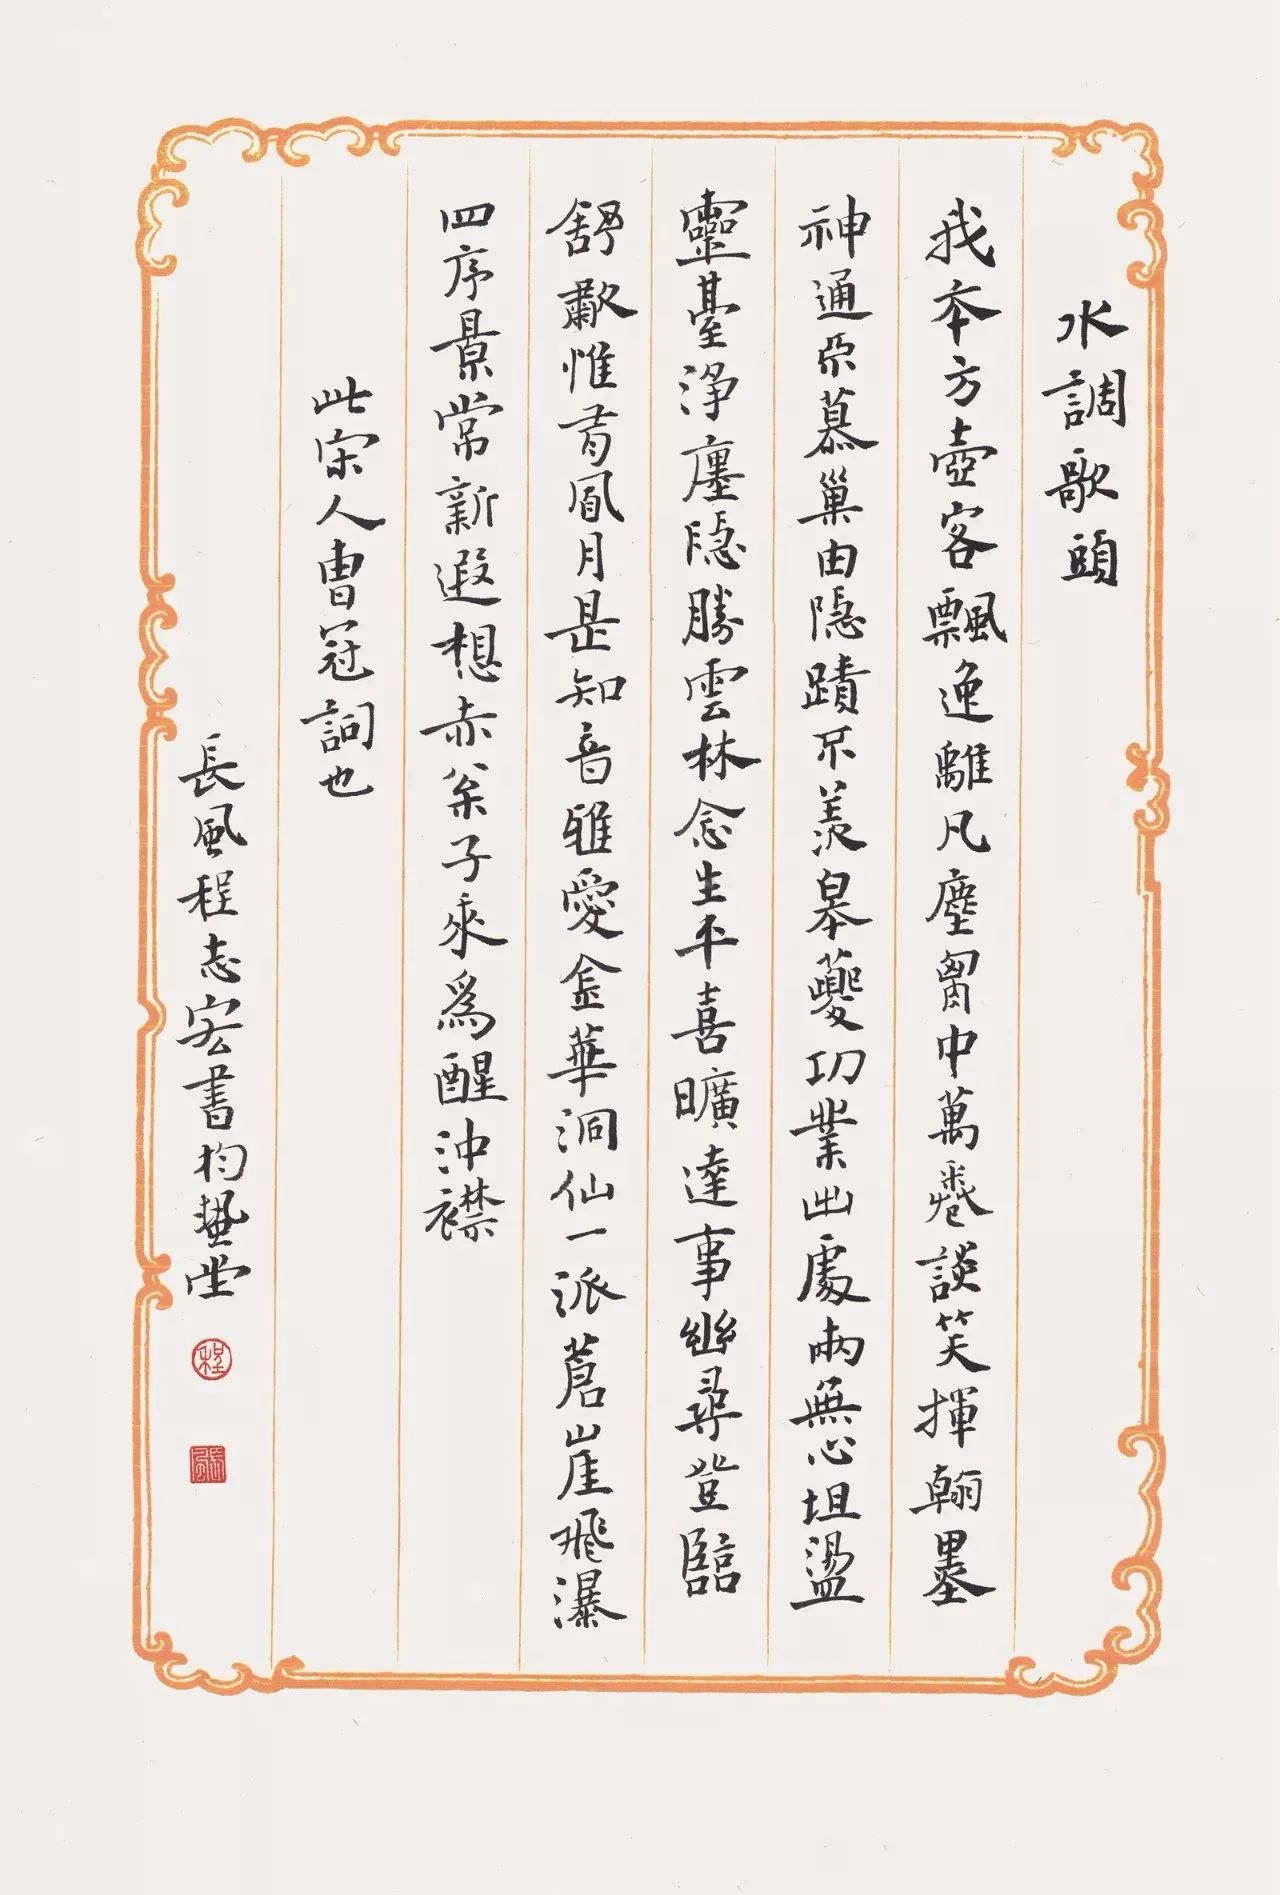 水調歌頭
我本方壺客飄逸離凡塵胷中萬卷談笑揮翰墨
神通亞慕巢由隱蹟不羨皋夔功業出處兩無心坦盪
靈臺淨廛隱勝雲林念生平喜曠達事幽尋登臨
舒歗惟有風月是知音雅愛金華洞仙一派蒼崖飛瀑
四序景常新遐想赤枀子乘爲醒沖襟
此宋人曹冠詞也
長風程志宏書於藝堂
程